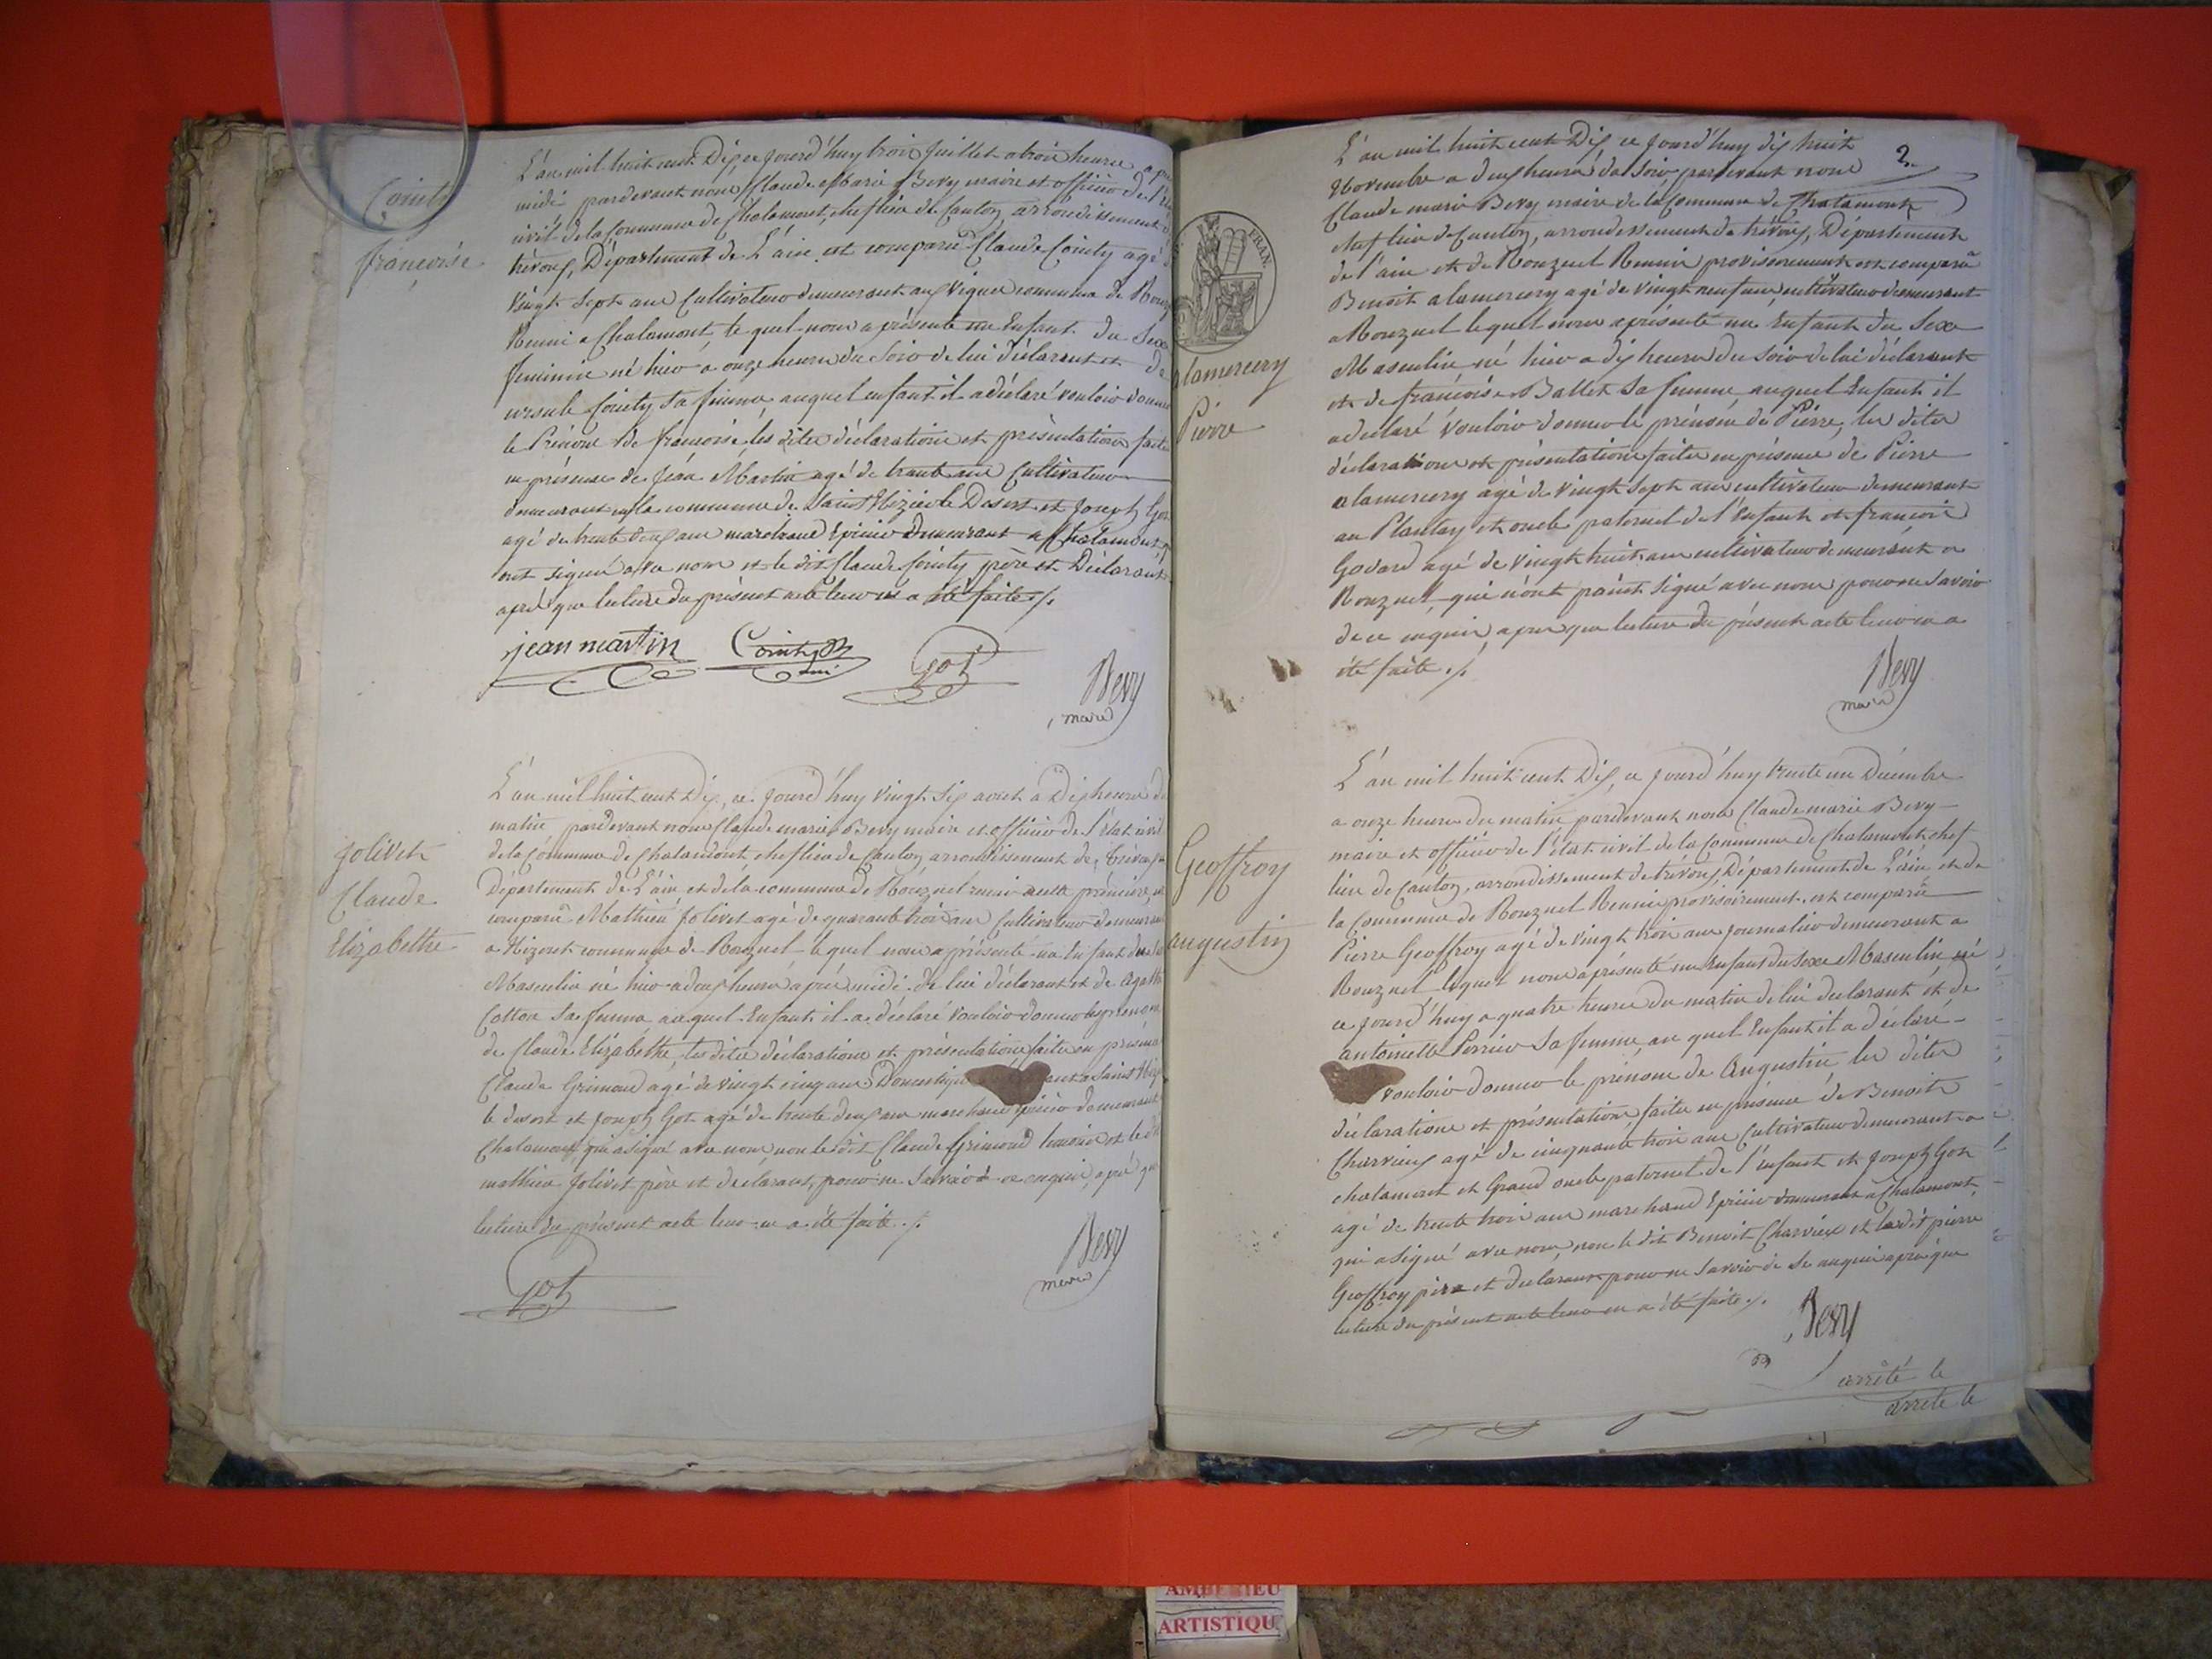 Cointy
françoise
L'an mil huit cent Dix, ce jourd'huy trois Juillet a trois heures
midi pardevant nous Claude Marie Bevy maire et officier de
civil de la Commune de Chalamont, chef lieu de Canton, arrondissement
trévoux, Département de L'ain est comparu Claude Cointy agé
vingt sept ans Cultivateur demeurant aux commune de
Reuni a Chalamont, le quel nous a présenté un Enfant du Sexe
feminin né hier a onze heures du Soir de lui déclarant et de
ursule Cointy Sa femme, auquel enfant il a déclaré vouloir donner
le Prénom de françoise, les dites déclarations et présentations faites
en présence de Jean Martin agé de trente ans Cultivateur
demeurant en la commune de Saint Nizier le Desert et Joseph Got
agé de trente deux ans marchand Epicier demeurant a Chalamont
ont signé avec nous et le dit Claude Cointy père et Déclarant
aprés que lecture du présent acte leur en a été faite ./.
jean martin Cointy got
Bevy
maire
jolivet
Claude
Elizabethe
L'an mil huit cent Dix, ce jourd'huy vingt six aout a Dix heures du
matin, pardevant nous Claude marie Bevy maire et officier de l'état civil
de la Commune de Chalamont, chef lieu de Canton arrondissement de Trévoux
Département de L'ain et de la commune de Ronzuel
comparu Mathieu Jolivet agé de quarante trois ans Cultivateur demeurant
a commune de Ronzuel lequel nous a présenté un Enfant du
Masculin né hier a deux heures après midi de lui déclarant et de Agathe
Cotton Sa femme au quel Enfant il a déclaré vouloir donner les prénoms
de Claude Elizabethe, les dites déclarations et présentations faites en présence
Claude Grimaud agé de vingt cinq ans Domestique a Saint
le desert et Joseph Got agé de trente deux ans marchand Epicier demeurant
Chalamont, qui a signé avec nous, non le dit Claude Grimaud temoin et le dit
mathieu Jolivet père et declarant, pour ne Savoir de ce enquis, aprés que
lecture du présent acte leur en a été faite ./.
got
Bevy
maire
2.
FRAN.
alamercery
Pierre
L'an mil huit cent Dix ce jourd'huy dix huit
Novembre a deux heures du Soir pardevant nous
Claude marie Bevy maire de la Commune de Chalamont,
chef lieu de Canton, arrondissement de trévoux, Département
de l'ain et de Ronzuel Reunie provisoirement est comparu
Benoit alamercery agé de vingt neuf ans, cultivateur demeurant
a Ronzuel lequel nous a présenté un Enfant du Sexe
Masculin né hier a dix heures du Soir de lui déclarant
et de françoise Ballet Sa femme auquel Enfant il
a déclaré Vouloir donner le prénom de Pierre, les dites
déclarations et présentations faites en présence de Pierre
alamercery agé de vingt Sept ans cultivateur demeurant
au Plantay et oncle paternel de l'Enfant et françois
Godard agé de vingt huit ans cultivateur demeurant a
Ronzuel, qui n'ont point signé avec nous pour ne Savoir
de ce enquis, apres que lecture du présent acte leur en a
été faite ./.
Bevy
maire
Geoffroy
augustin
L'an mil huit cent Dix, ce jourd'huy trente un Décembre
a onze heures du matin pardevant nous Claude marie Bevy
maire et officier de l'état civil de la Commune de Chalamont chef
lieu de Canton, arrondissement de trévoux Département de L'ain et de
la Commune de Ronzuel Reunie provisoirement. est comparu
Pierre Geoffroy agé de vingt trois ans journalier demeurant a
Ronzuel lequel nous a présenté un Enfant du Sexe Masculin né
ce jourd'huy a quatre heures du matin de lui declarant et de
antoinette Perrier Sa femme, au quel Enfant il a déclaré
vouloir donner le prénom de Augustin les dites
déclarations et présentations, faites en présence de Benoit
Charvieux agé de cinquante trois ans Cultivateur demeurant a
chalamont et Grand oncle paternel de l'enfant et Joseph Got
agé de trente trois ans marchand Epicier demeurant a Chalamont,
qui a signé avec nous, non le dit Benoit Charvieux et le dit pierre
Geoffroy père et declarant pour ne Savoir de ce enquis aprés que
lecture du présent acte leur en a été faite ./.
Bevy
arrêté le
arrêté le
ARTISTIQU